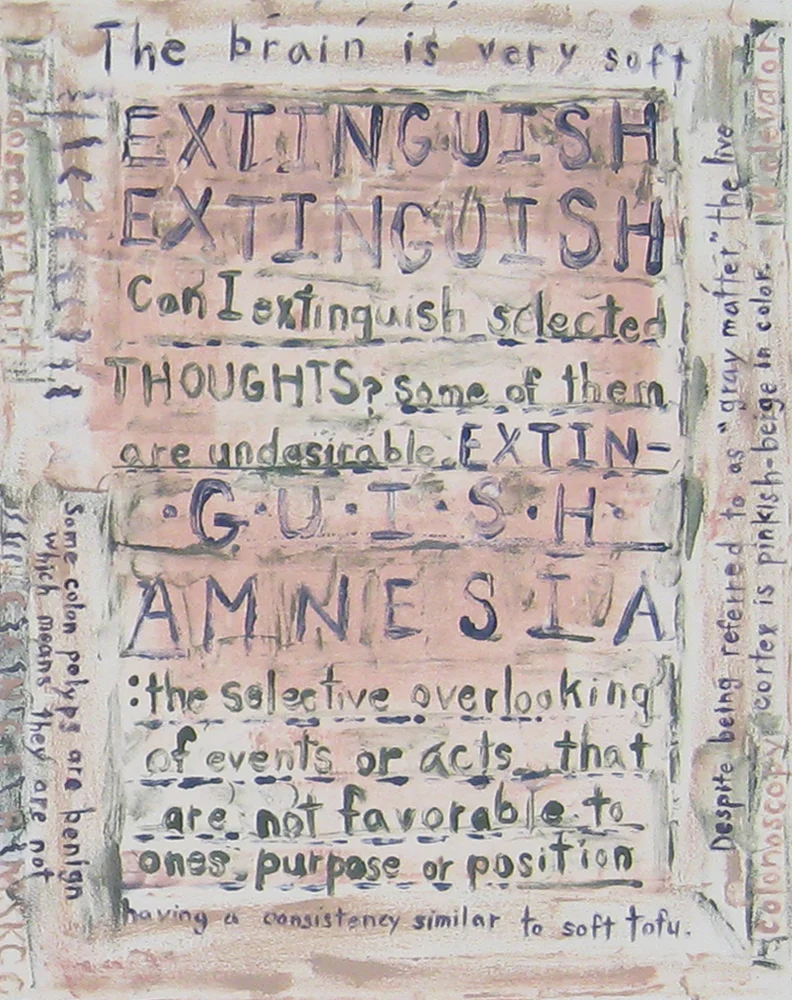 The brain is very soft
EXTINGUISH
EXTINGUISH
Can I extinguish selected
THOUGHTS? some of them
are undesirable. EXTIN-
·G·U·I·S·H·
AMNESIA
:the selective overlooking
of events or acts that
are not favorable to
ones purpose or position
having a consistency similar to soft tofu.
Despite being referred to as "gray matter" the live
cortex is pinkish-beige in color.
Some colon polyps are benign
which means they are not
Endoscopy Unit
elevator
colonoscopy